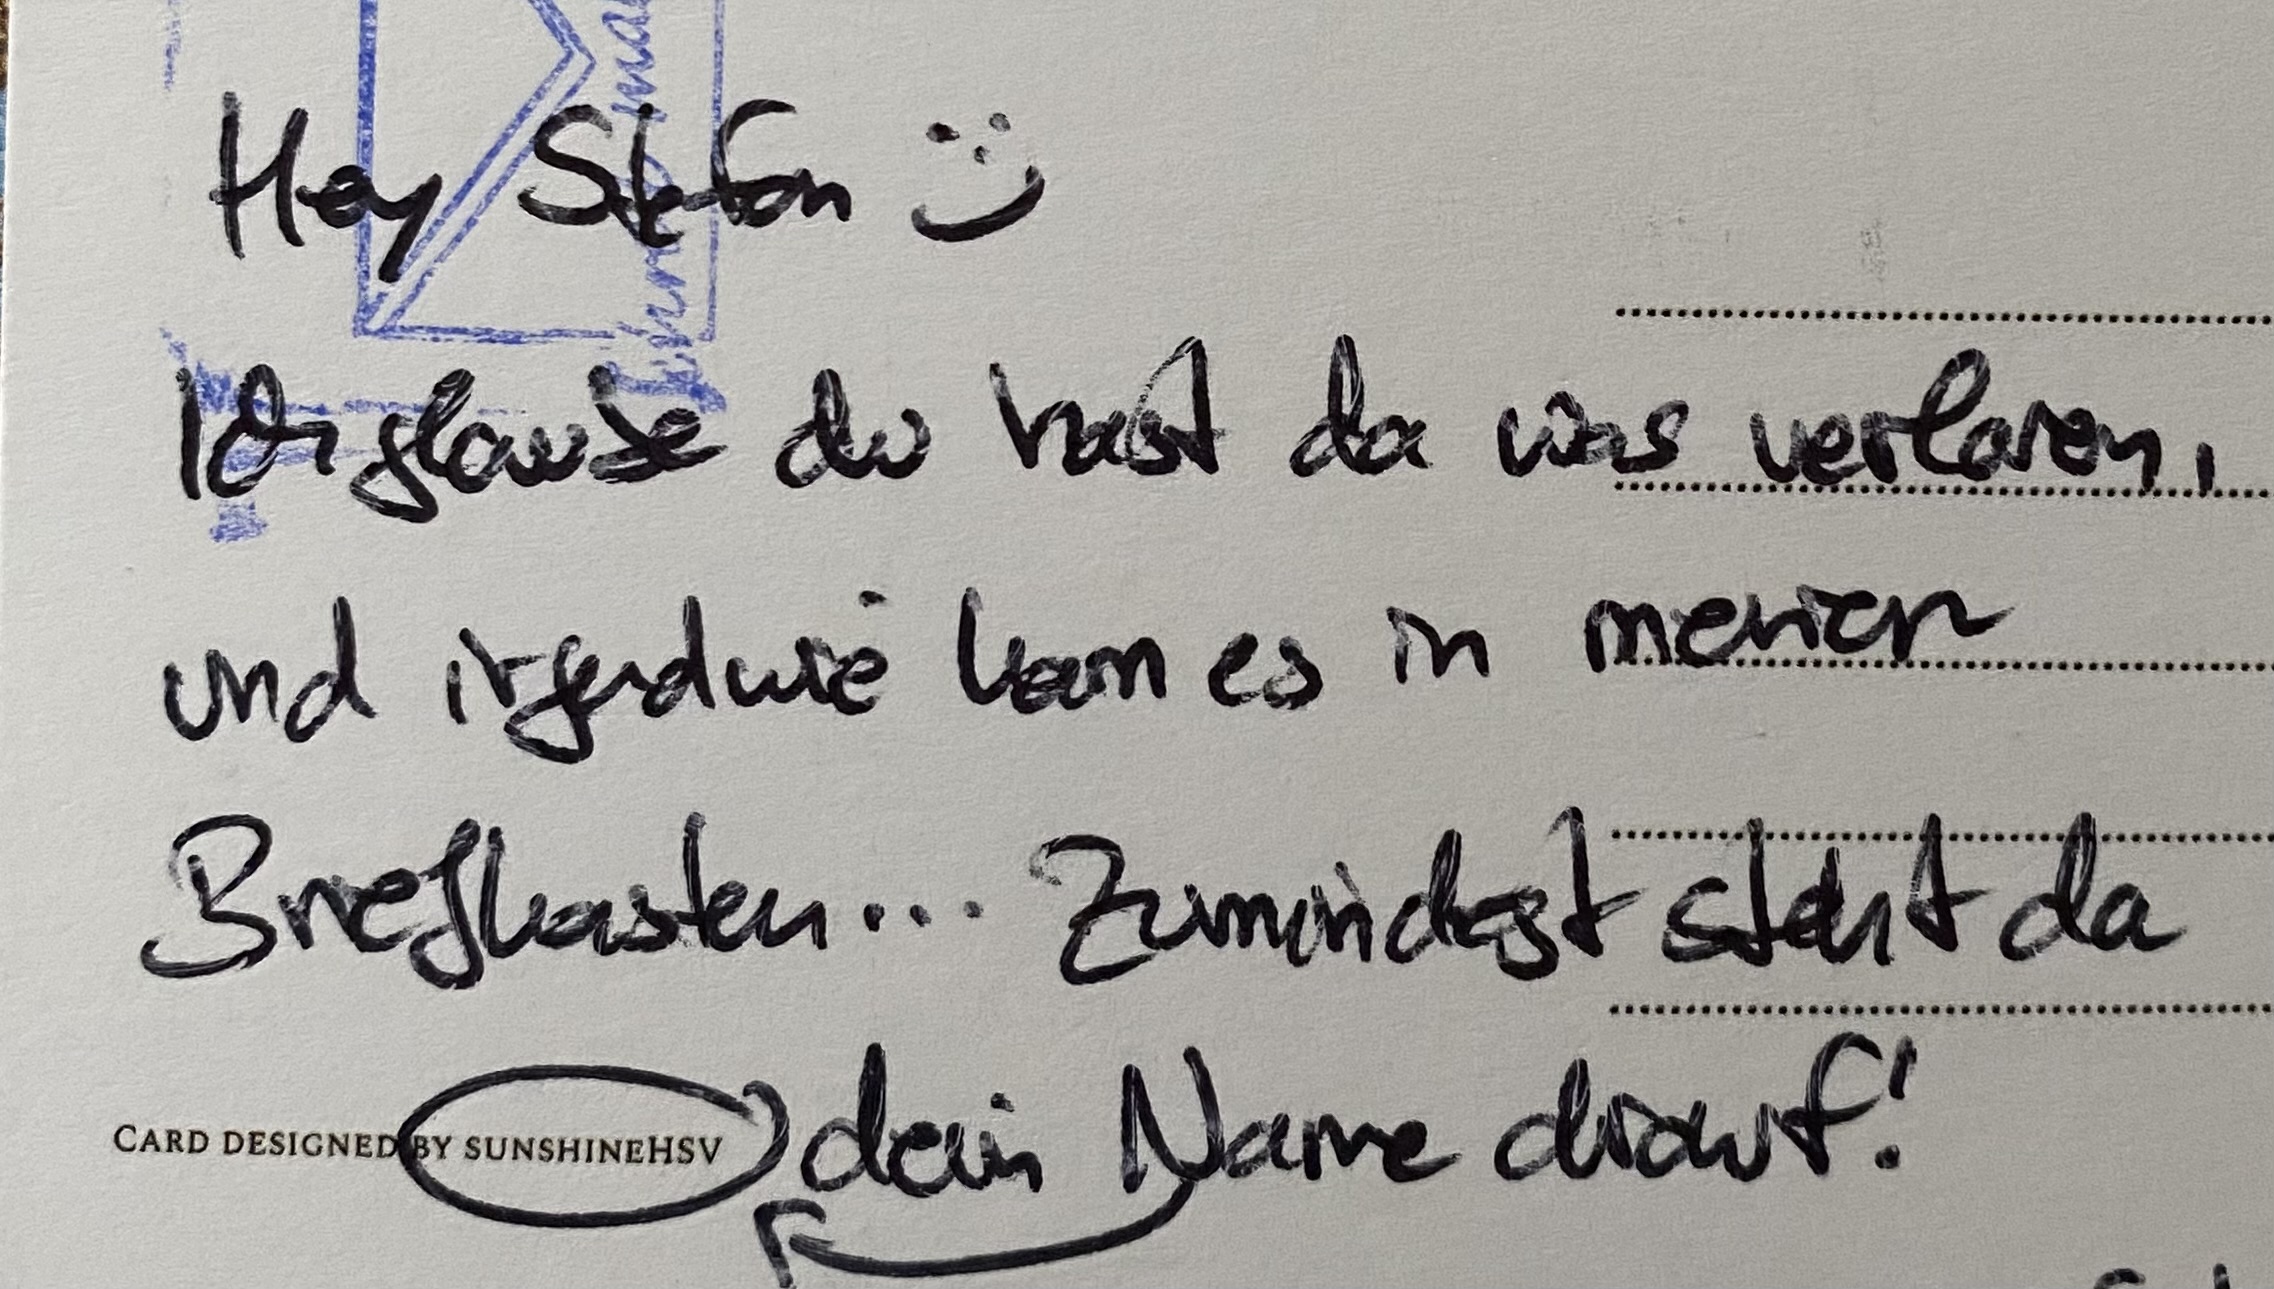 Hey Stefan :)
Ich glaube du hast da was verloren,
und irgendwie kam es in meinen
Briefkasten... Zumindest steht da
CARD DESIGNED BY SUNSHINEHSV dein Name drauf!